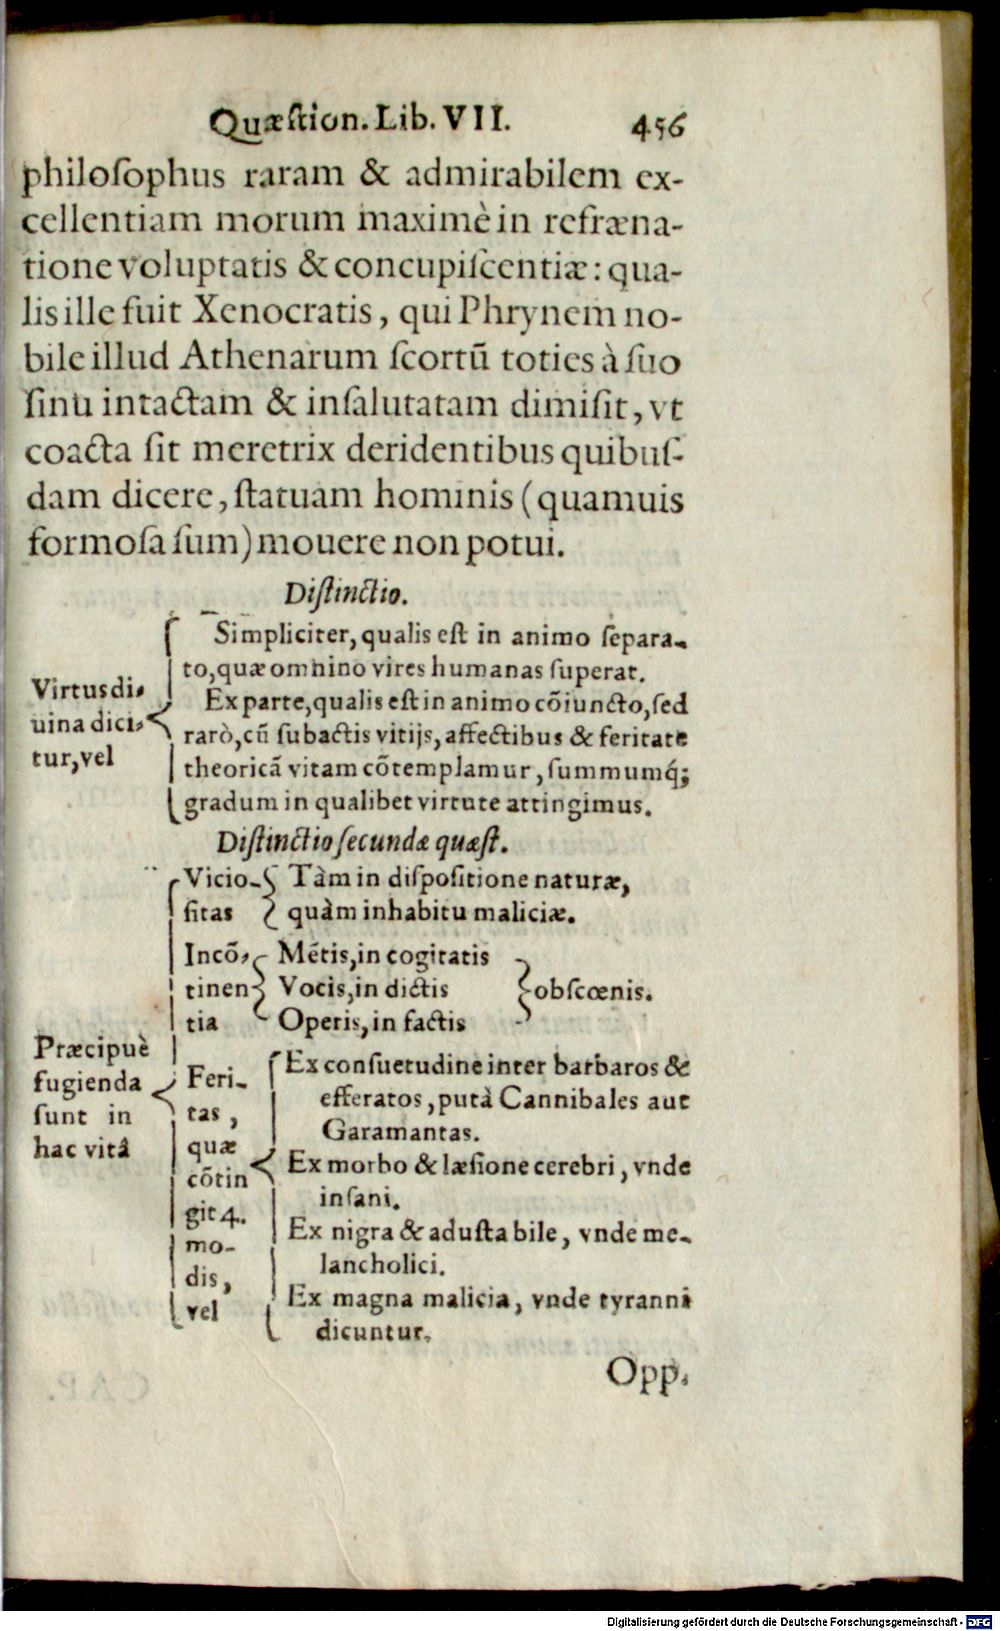 Quæſtion. Lib. VII. 456
philoſophus raram & admirabilem ex-
cellentiam morum maximè in refræna-
tione voluptatis & concupiſcentiæ: qua-
lis ille fuit Xenocratis, qui Phrynem no-
bile illud Athenarum ſcortũ toties à ſuo
ſinu intactam & inſalutatam dimiſit, vt
coacta ſit meretrix deridentibus quibuſ-
dam dicere, ſtatuam hominis (quamuis
formoſa ſum) mouere non potui.
Diſtinctio.
Virtus di-
uina dici-
tur, vel
Simpliciter, qualis eſt in animo ſepara-
to, quæ omnino vires humanas ſuperat.
Ex parte, qualis eſt in animo cõiuncto, ſed
rarò, cũ ſubactis vitijs, affectibus & feritate
theoricã vitam cõtemplamur, ſummumq́;
gradum in qualibet virtute attingimus.
Diſtinctio ſecundæ quæſt.
Præcipuè
fugienda
ſunt in
hac vitâ
Vicio-
ſitas
Tàm in diſpoſitione naturæ,
quàm in habitu maliciæ.
Incõ-
tinen
tia
Mẽtis, in cogitatis
Vocis, in dictis
Operis, in factis
obſcœnis.
Feri-
tas,
quæ
cõtin
git 4.
mo-
dis,
vel
Ex conſuetudine inter barbaros &
efferatos, putà Cannibales aut
Garamantas.
Ex morbo & læſione cerebri, vnde
inſani.
Ex nigra & aduſta bile, vnde me-
lancholici.
Ex magna malicia, vnde tyranni
dicuntur.
Opp.
Digitalisierung gefördert durch die Deutsche Forschungsgemeinschaft - DFG